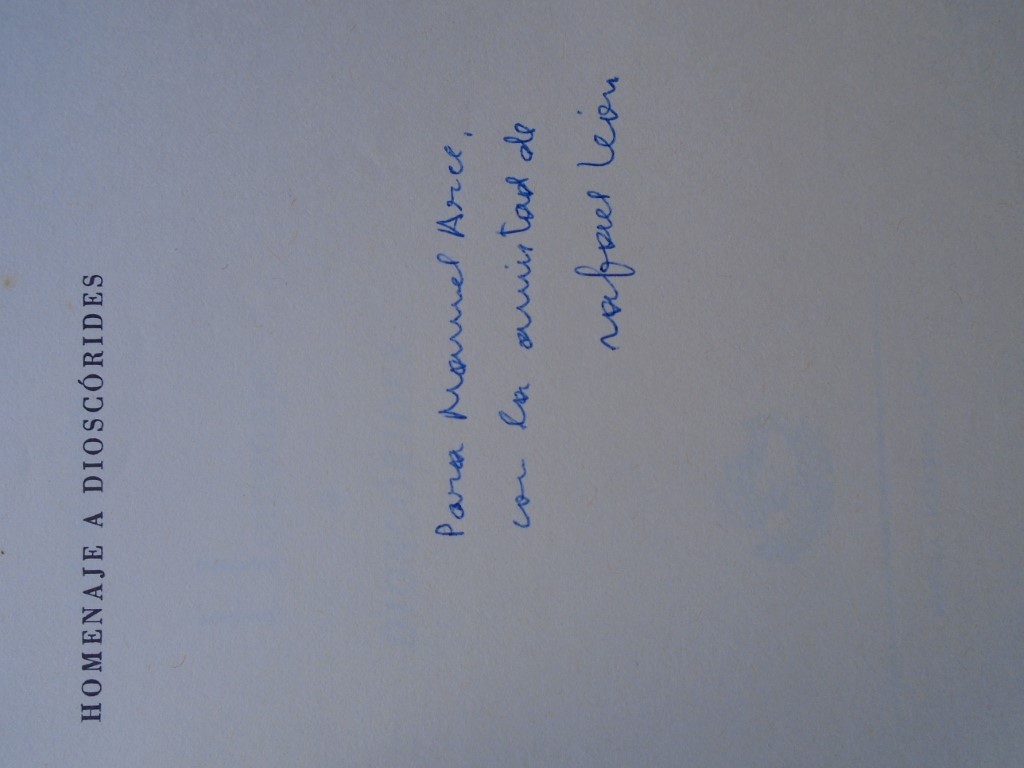 HOMENAJE A DIOSCÓRIDES
Para Manuel Arce,
con la amistad de
rafael león